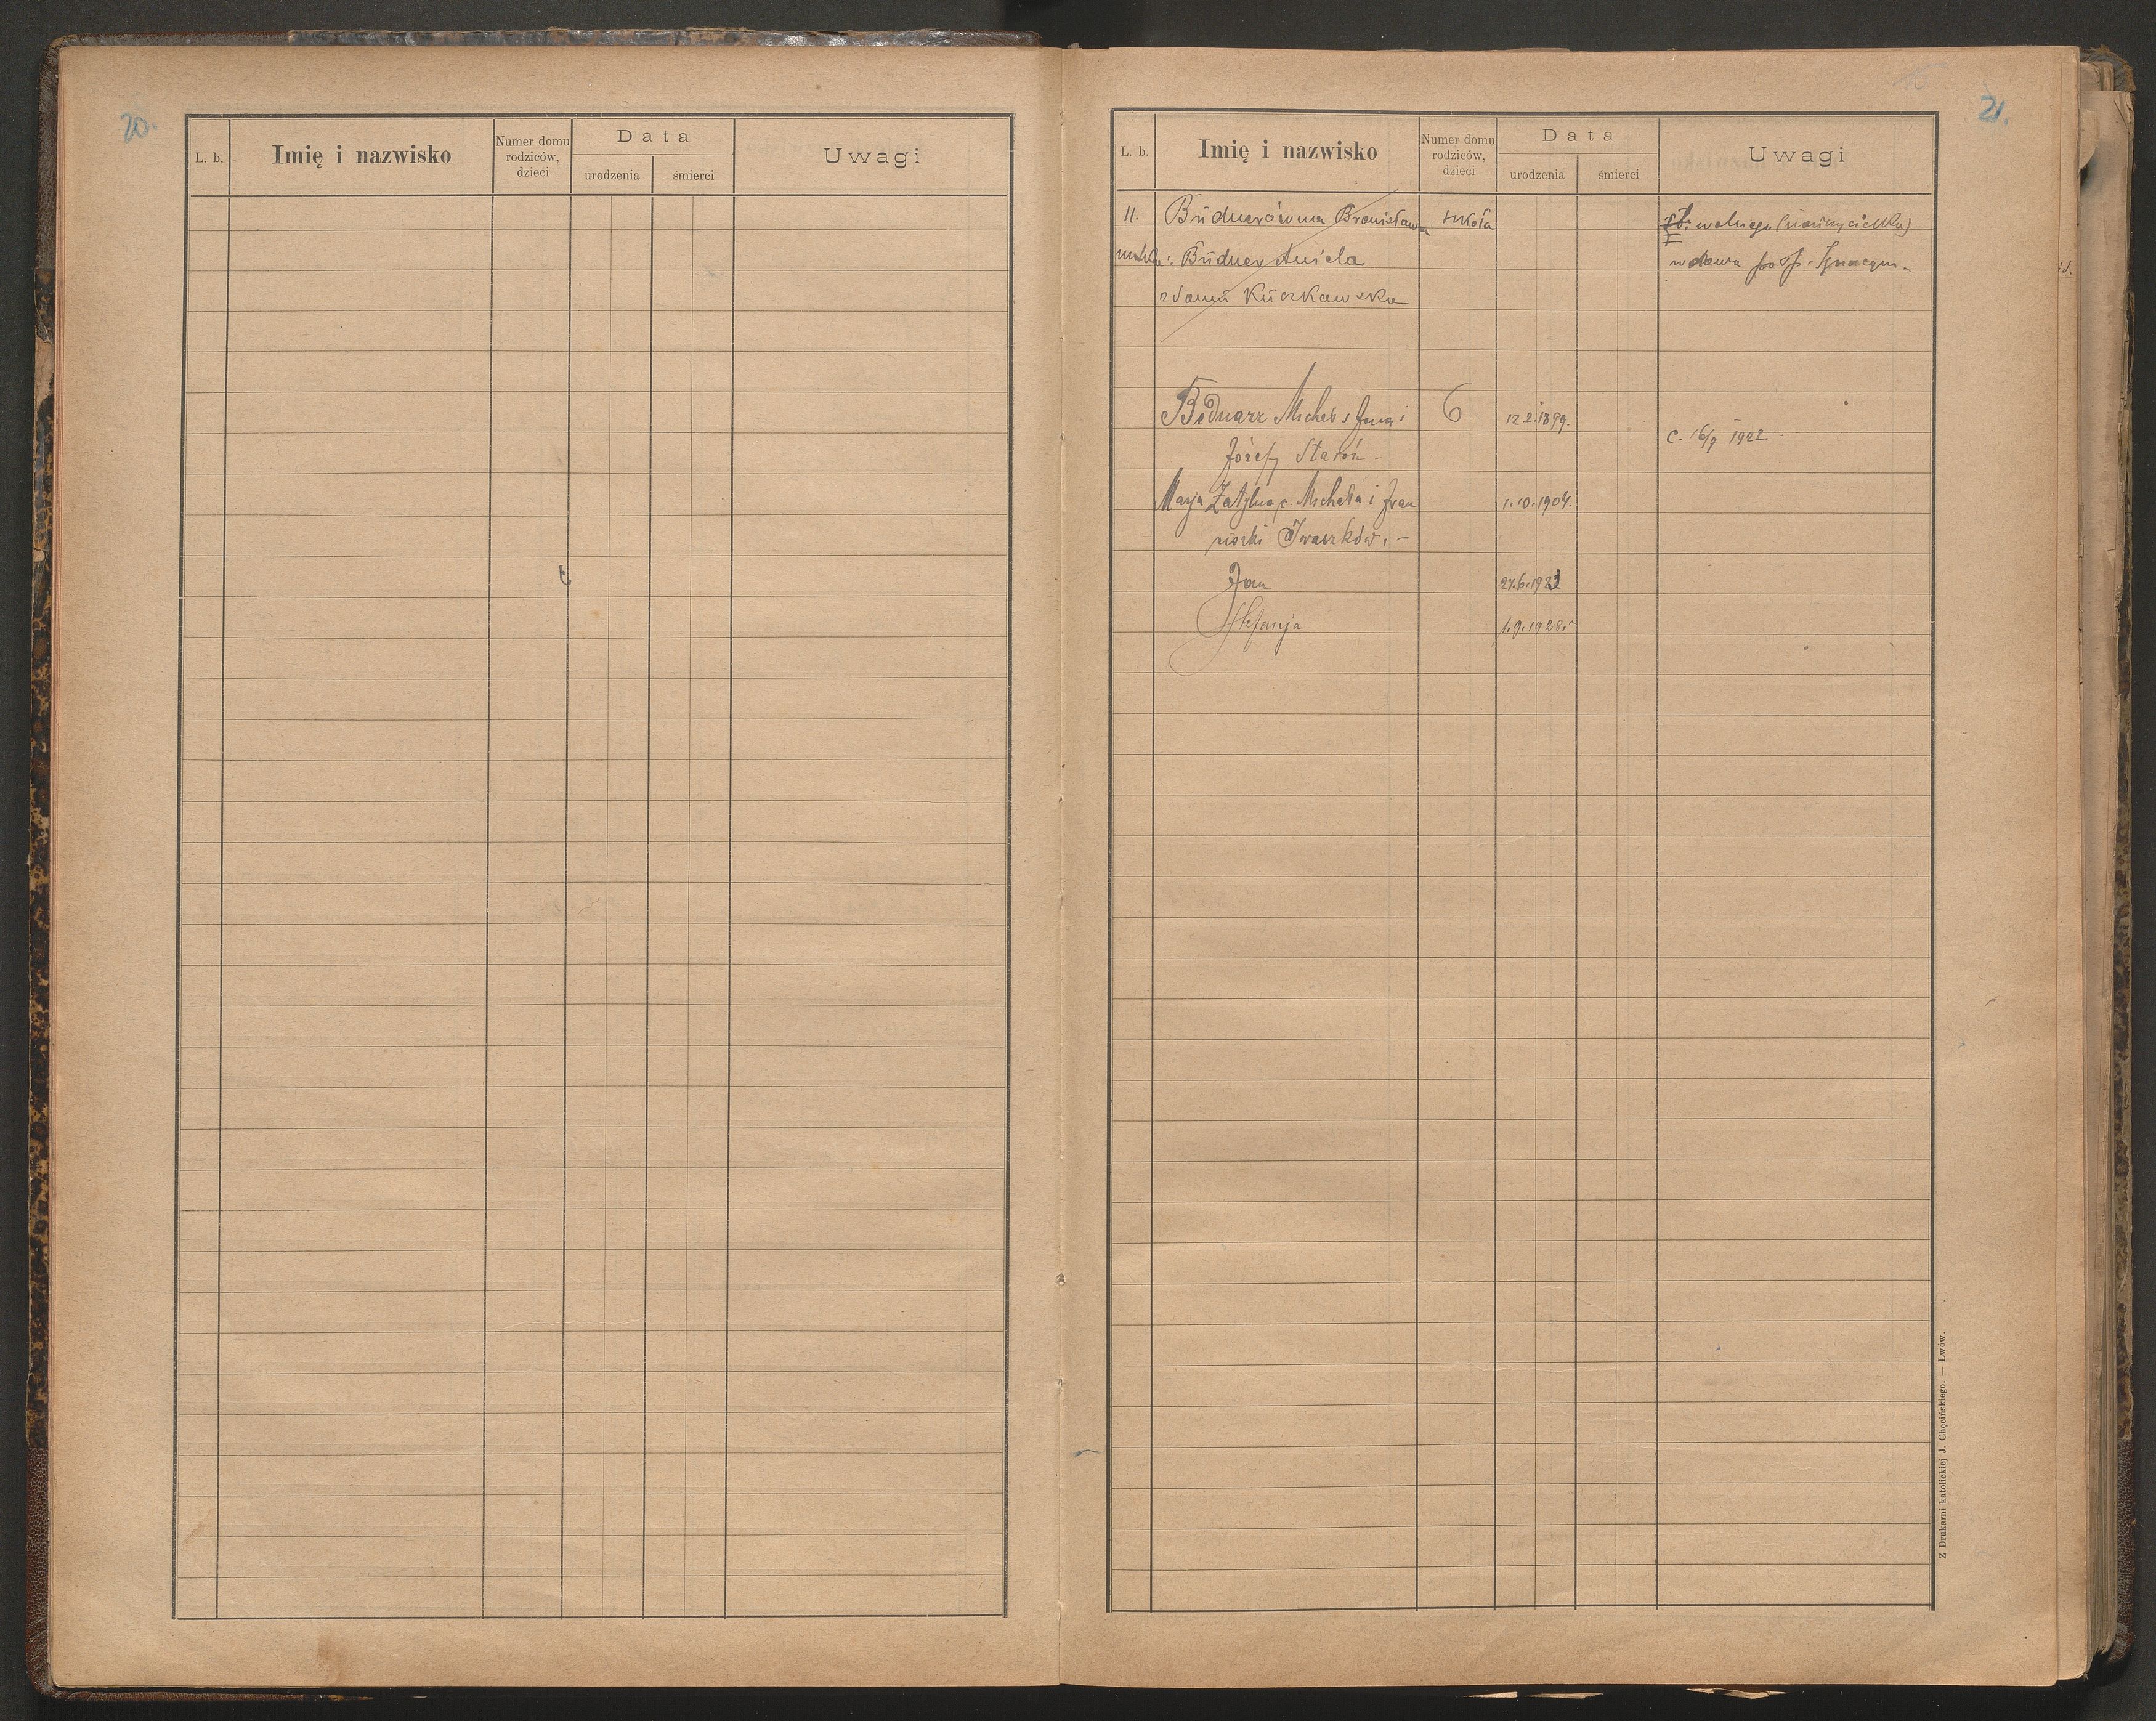 20.
L. b.
Imię i nazwisko
Numer domu
rodziców,
dzieci
Data
urodzenia
śmierci
Uwagi
21.
L. b.
Imię i nazwisko
Numer domu
rodziców,
dzieci
Data
urodzenia
śmierci
Uwagi
11. Büdnerówna Bronisława szkoła st. wolnego (nauczycielka)
matka: Büdner Aniela wdowa po śp. Ignacym
z domu Kuczkowska
Bednarz Michał s. Jana i 6 12.2.1899.
c. 16/7 1922.
Józefy Staroń -
Marja Zatylna, c. Michała i Fran 1.10.1904.
ciszki Iwaszków. -
Jan 27.6.192
Stefanja 1.9.1928.
Z Drukarni katolickiej J. Chęcińskiego. — Lwów.